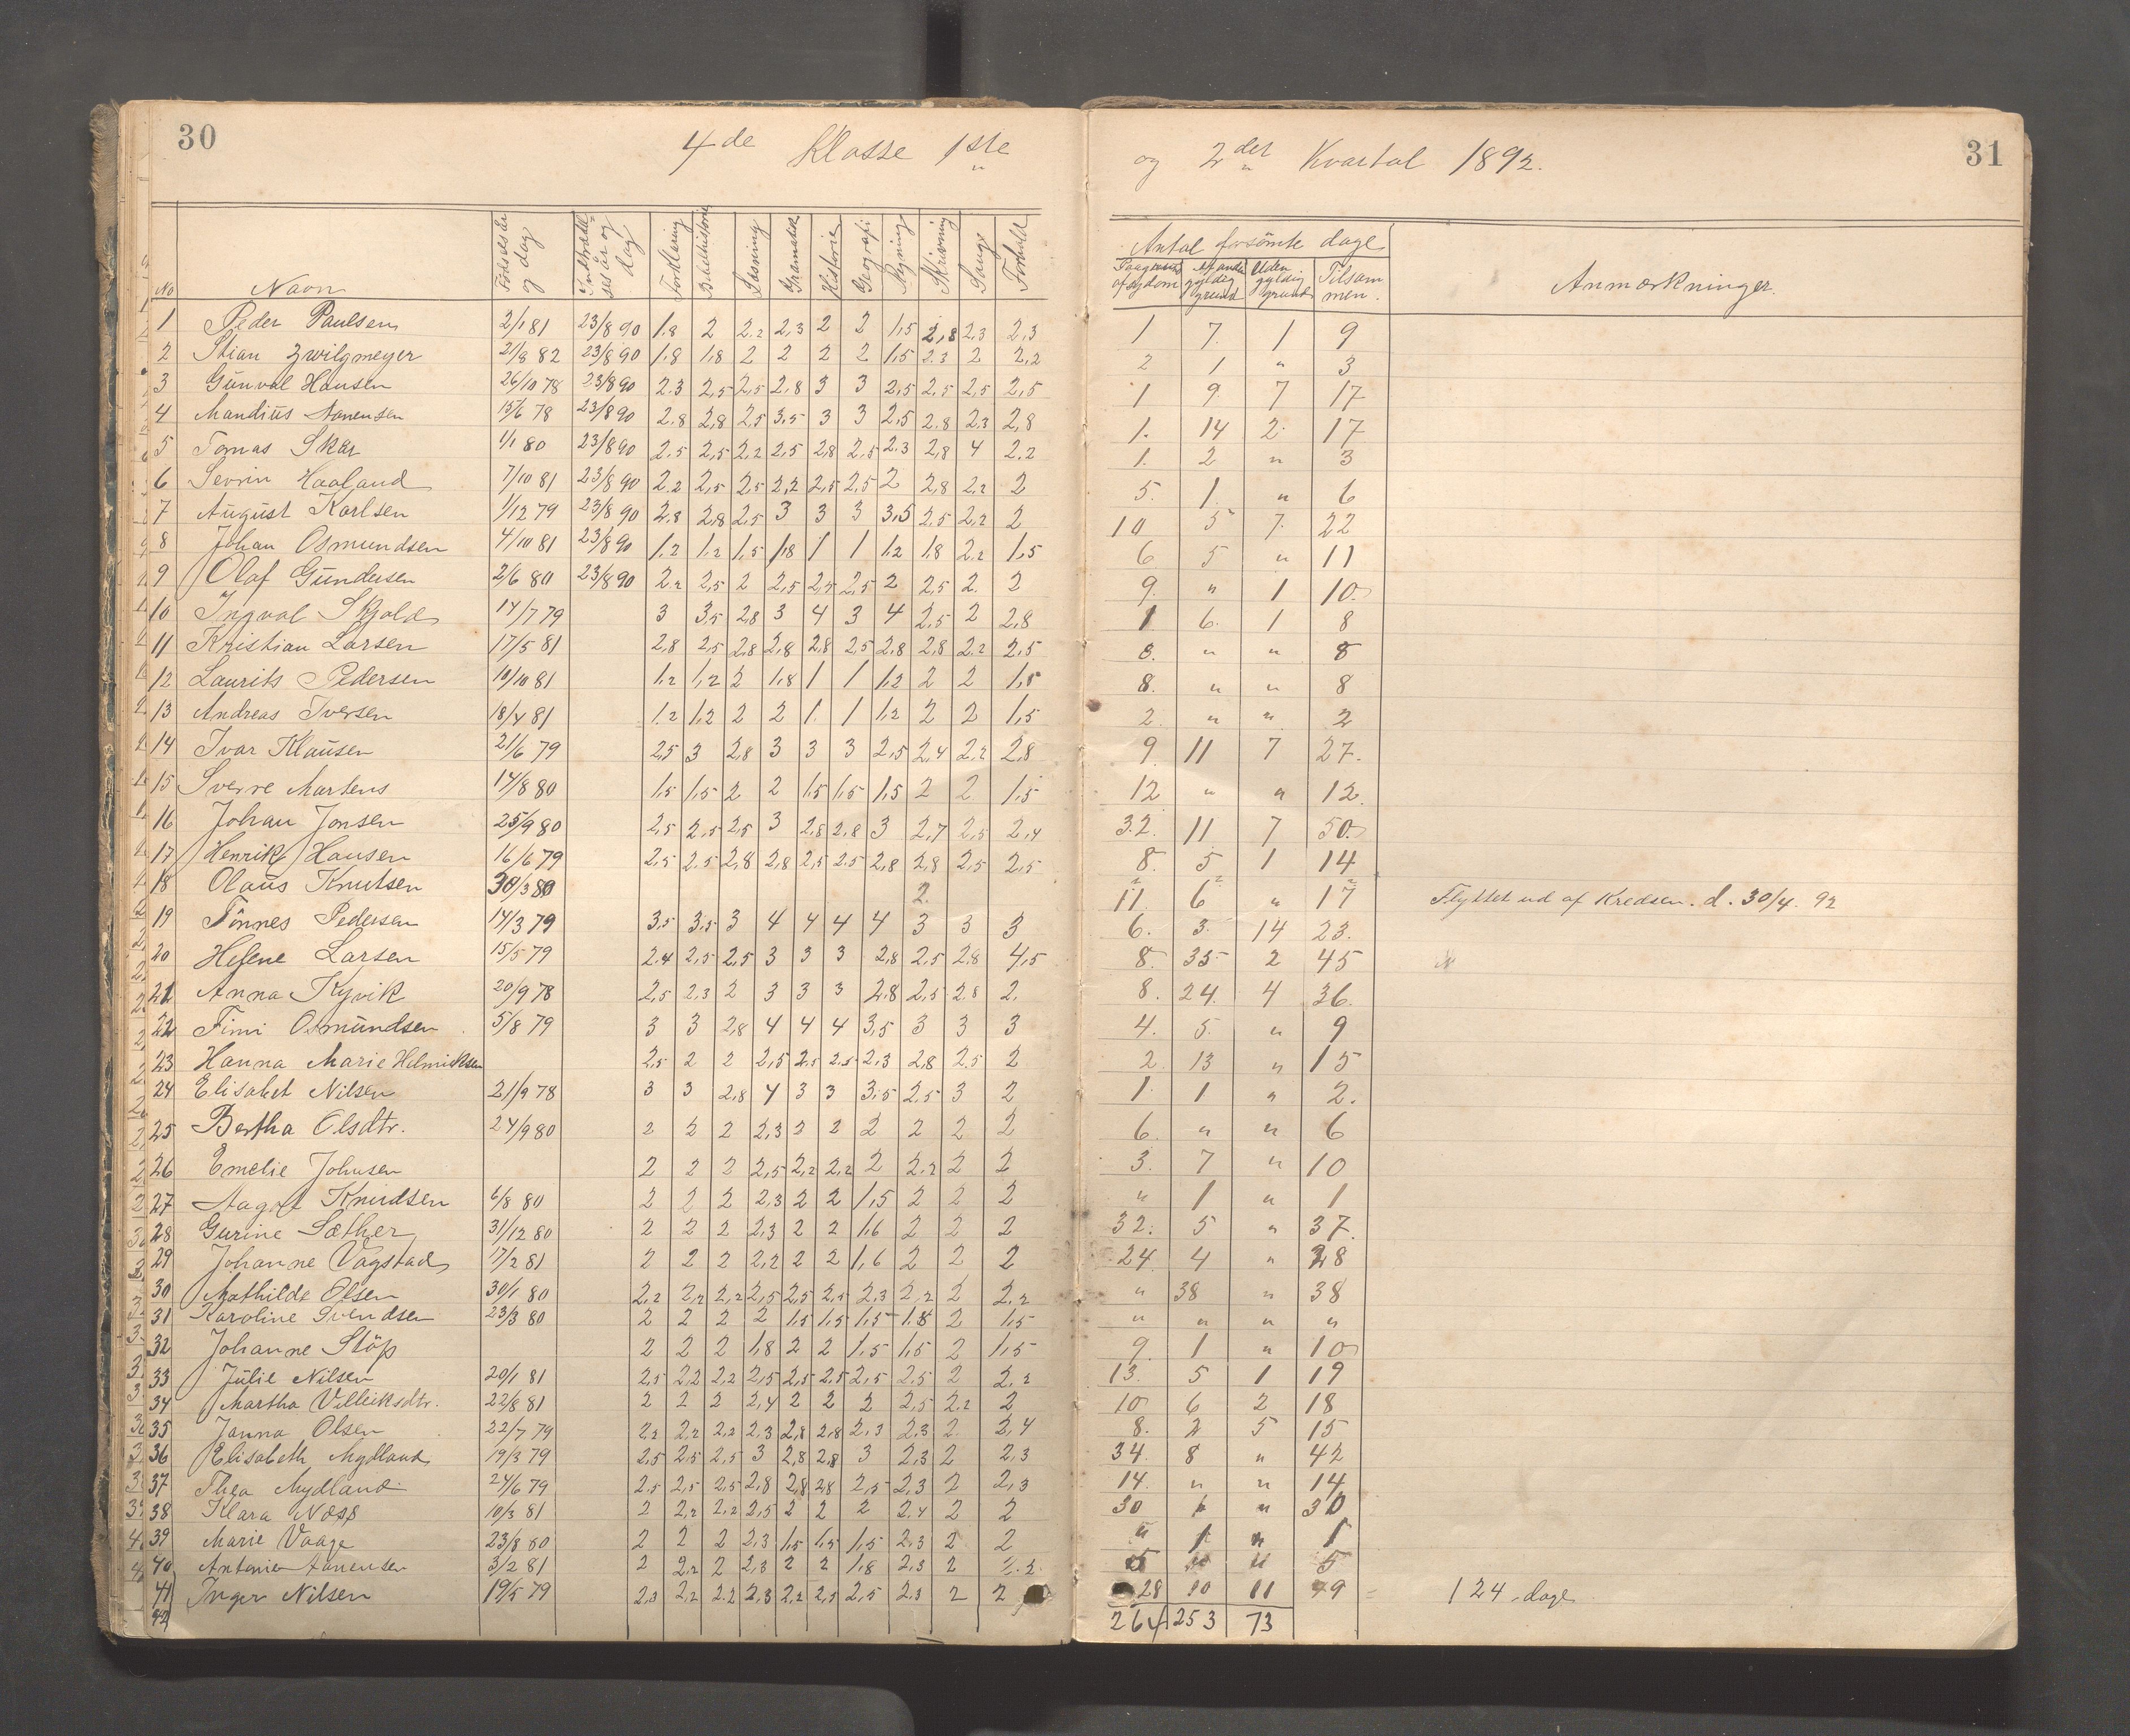 30
4de Klasse 1ste
og 2det Kvartal 1892.
31
No Navn Fødselsår og dag Indtrædelsesår og dag Forklaring Bibelhistorie Læsning Gramatik Historie Geografi Regning Skrivning Sang Forhold
Antal forsömte dage
Paagrund af sygdom Af anden gyldig grund Uden gyldig grund Tilsammen. Anmærkninger.
1 Peder Paulsen 2/1 81 23/8 90 1,8 2 2,2 2,3 2 2 1,5 2,8 2,3 2,3 1 7 1 9
2 Stian Zwilgmeyer 21/8 82 23/8 90 1,8 1,8 2 2 2 2 1,5 2,3 2 2,2 2 1 " 3
3 Günval Hansen 26/10 78 23/8 90 2,3 2,5 2,5 2,8 3 3 2,5 2,5 2,5 2,5 1 9 7 17
4 Mandiüs Aanensen 15/6 78 23/8 90 2,8 2,8 2,5 3,5 3 3 2,5 2,8 2,3 2,8 1. 14 2 17
5 Tomas Skår 1/1 80 23/8 90 2,5 2,5 2,2 2,5 2,8 2,5 2,3 2,8 4 2,2 1. 2 " 3
6 Sevrin Haaland 7/10 81 23/8 90 2,2 2,5 2,5 2,2 2,5 2,5 2 2,8 2,2 2 5. 1. " 6
7 Aügüst Karlsen 1/12 79 23/8 90 2,8 2,8 2,5 3 3 3 3,5 2,5 2,2 2 10 5 7 22
8 Johan Osmundsen 4/10 81 23/8 90 1,2 1,2 1,5 1,8 1 1 1,2 1,8 2,2 1,5 6 5 " 11
9 Olaf Gündersen 2/6 80 23/8 90 2,2 2,5 2 2,5 2,5 2,5 2 2,5 2. 2 9. " 1 10
10 Ingval Skjold 14/7 79 3 3,5 2,8 3 4 3 4 2,5 2 2,8 1 6. 1 8
11 Kristian Larsen 17/5 81 2,8 2,5 2,8 2,8 2,8 2,5 2,8 2,8 2,2 2,5 8. " " 8
12 Laurits Pedersen 10/10 81 1,2 1,2 2 1,8 1 1 1,2 2 2 1,5 8. " " 8
13 Andreas Iversen 18/4 81 1,2 1,2 2 2 1. 1 1,2 2 2 1,5 2. " " 2
14 Ivar Klaüsen 21/6 79 2,5 3 2,8 3 3 3 2,5 2,4 2,2 2,8 9 11 7 27.
15 Sverre Martens 14/8 80 1,5 1,5 2 2 1,5 1,5 1,5 2 2 1,5 12 " " 12.
16 Johan Jonsen 25/9 80 2,5 2,5 2,5 3 2,8 2,8 3 2,7 2,5 2,4 32. 11 7 50
17 Henrik Hansen 16/6 79 2,5 2,5 2,8 2,8 2,5 2,5 2,8 2,8 2,5 2,5 8. 5 1 14
18 Olaüs Knutsen 30/3 80 2. 11 6 " 17 Flyttet ud af Kredsen. d. 30/4. 92
19 Tönnes Pedersen 14/3 79 3,5 3,5 3 4 4 4 4 3 3 3 6. 3. 14 23.
20 Helene Larsen 15/5 79 2,4 2,5 2,5 3 3 3 2,8 2,5 2,8 4,5 8. 35 2 45
21 Anna Kyvik 20/9 78 2,5 2,3 2 3 3 3 2,8 2,5 2,8 2. 8. 24. 4 36.
22 Fini Osmündsen 5/8 79 3 3 2,8 4 4 4 3,5 3 3 3 4. 5. " 9
23 Hanna Marie Helmiksen 2,5 2 2 2,5 2,5 2,5 2,3 2,8 2,5 2 2. 13 " 15
24 Elisabet Nilsen 21/9 78 3 3 2,8 4 3 3 3,5 2,5 3 2 1. 1 " 2.
25 Bertha Olsdtr. 24/9 80 2 2 2 2,3 2 2 2 2 2 2 6. " " 6
26 Emelie Johnsen 2 2 2 2,5 2,2 2,2 2 2,2 2 2 3. 7 " 10
27 Aagot Knudsen 6/8 80 2 2 2 2,3 2 2 1,5 2 2 2 " 1 " 1
28 Gurine Sæther 31/12 80 2 2 2 2,3 2 2 1,6 2 2 2 32. 5 " 37.
29 Johanne Vagstad 17/2 81 2 2 2 2,2 2 2 1,6 2 2 2 24. 4 " 28
30 Mathilde Olsen 30/1 80 2,2 2,2 2,2 2,5 2,5 2,5 2,3 2,2 2 2,2 " 38 " 38
31 Karoline Svendsen 23/3 80 2 2 2 2 1,5 1,5 1,5 1,8 2 1,5 " " " "
32 Johanne Stöp 2 2 2 1,8 2 2 1,5 1,5 2 1,5 9. 1 " 10
33 Jülie Nilsen 20/1 81 2,5 2,2 2,2 2,5 2,5 2,5 2,5 2,5 2 2,2 13. 5 1 19
34 Martha Villiksdtr. 22/8 81 2 2 2 2,4 2 2 2 2,5 2,2 2 10 6 2 18
35 Janna Olsen 22/7 79 2,2 2,2 2,2 2,3 2,8 2,8 2,3 2,3 2. 2,4 8. 2 5 15
36 Elisabeth Mydland 19/3 79 2,5 2,5 2,5 3 2,8 2,8 3 2,3 2 2,3 34. 8 " 42
37 Thea Mydland 24/6 79 2,5 2,5 2,5 2,8 2,8 2,8 2,5 2,3 2 2,3 14. " " 14
38 Klara Næss 10/3 81 2 2,2 2,2 2,5 2 2 2 2,4 2 2 30 " 30
39 Marie Vaage 23/8 80 2 2 2 2,3 1,5 1,5 1,5 2,3 2 2 " 1 " 1
40 Antonie Aanensen 3/2 81 2 2,2 2 2,3 2 2 1,8 2,3 2 5 " " 5
41 Inger Nilsen 19/5 79 2,3 2,2 2,2 2,3 2,2 2,5 2,5 2,3 2 2 28 10 11 49 124 dage
42 264 253 73